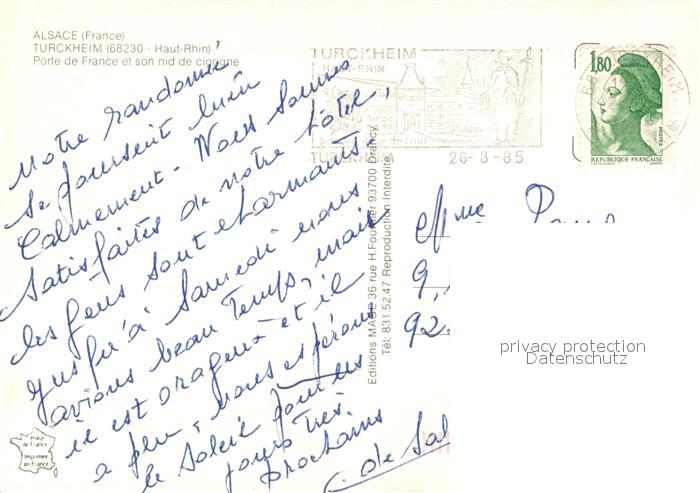 ALSACE (France)
TURCKHEIM (68230 - Haut-Rhin)
Porte de France et son nid de cigogne
Notre randonné
se poursuit bien
Calmement - Nous sommes
satisfaites de notre hôtel,
les gens sont charmants
jusqu'à Samedi nous
avions beau temps, mais
il est orageux et il
a plu, nous espérons
le soleil pour les
jours très
prochains
C. de Sal
Image de France
Imprimée en France
Editions MAGE 36 rue H.Fournier 93700 Drancy
Tél: 831.52.47 Reproduction Interdite
TURCKHEIM
HAUT-RHIN
TURCKHEIM 26-3-85
1,80
POSTES
REPUBLIQUE FRANÇAISE
Mme
9,
92
privacy protection
Datenschutz